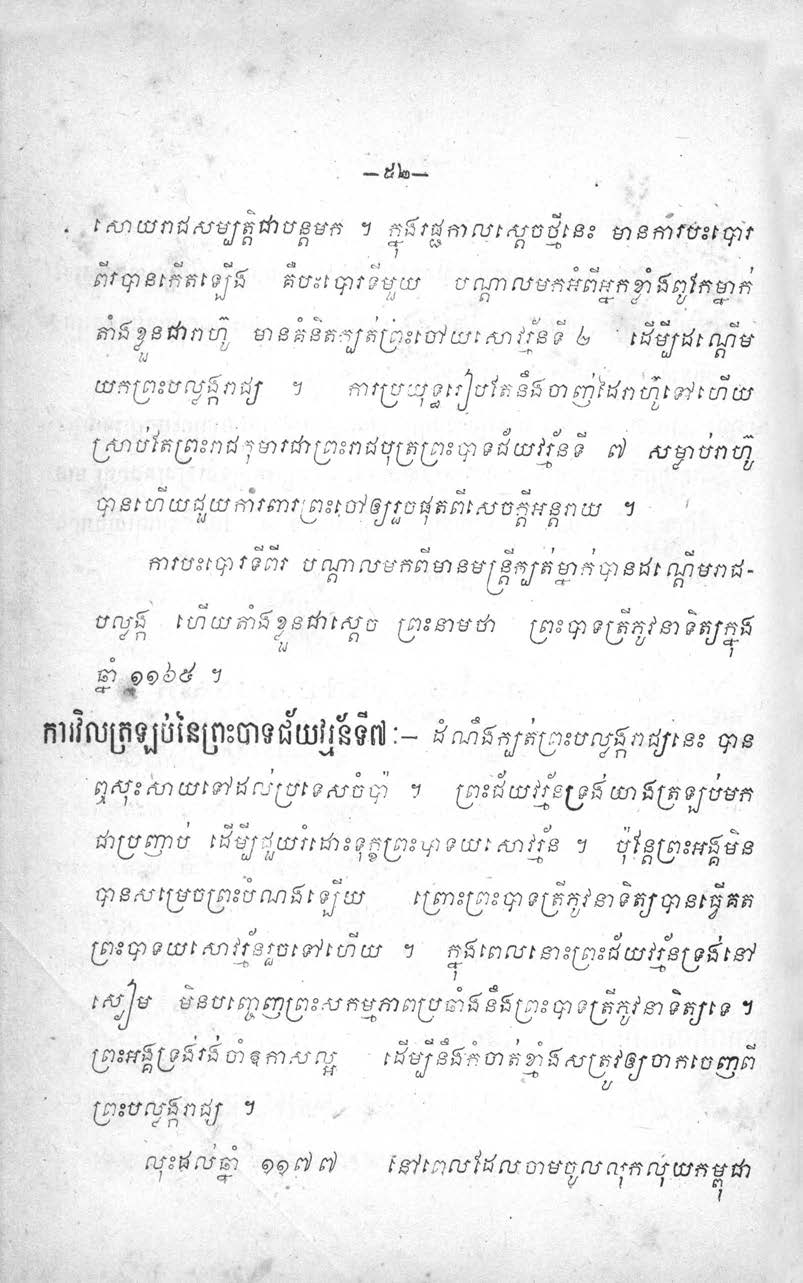 —៥២—
សោយរាជសម្បត្តិជាបន្តមក ។ ក្នុងរជ្ជកាលស្តេចថ្មីនេះ មានការបះបោរ
ពីរបានកើតឡើង គឺបះបោរទីមួយ បណ្តាលមកអំពីអ្នកខ្លាំងពូកែម្នាក់
តាំងខ្លួនជារាហ៊ូ មានគំនិតក្បត់ព្រះចៅយសោវរ្ម័នទី ២ ដើម្បីដណ្តើម
យកព្រះបល្ល័ង្ករាជ្យ ។ ការប្រយុទ្ធរៀបតែនឹងចាញ់ដៃរាហ៊ូទៅហើយ
ស្រាប់តែព្រះរាជកុមារជាព្រះរាជបុត្រព្រះបាទជ័យវរ្ម័នទី ៧ សម្លាប់រាហ៊ូ
បានហើយជួយការពារព្រះចៅឲ្យរួចផុតពីសេចក្តីអន្តរាយ ។
ការបះបោរទីពីរ បណ្តាលមកពីមានមន្ត្រីក្បត់ម្នាក់បានដណ្តើមរាជ-
បល្ល័ង្ក ហើយតាំងខ្លួនជាស្តេច ព្រះនាមថា ព្រះបាទត្រីភូវនាទិត្យក្នុង
ឆ្នាំ ១១៦៥ ។
ការវិលត្រឡប់នៃព្រះបាទជ័យវរ្ម័នទី៧ :— ដំណឹងក្បត់ព្រះបល្ល័ង្ករាជ្យនេះ បាន
ឮសុះសាយទៅដល់ប្រទេសចំប៉ា ។ ព្រះជ័យវរ្ម័នទ្រង់យាងត្រឡប់មក
ជាប្រញាប់ ដើម្បីជួយរំដោះទុក្ខព្រះបាទយសោវរ្ម័ន ។ ប៉ុន្តែព្រះអង្គមិន
បានសម្រេចព្រះបំណងឡើយ ព្រោះព្រះបាទត្រីភូវនាទិត្យបានធ្វើគត
ព្រះបាទយសោវរ្ម័នរួចទៅហើយ ។ ក្នុងពេលនោះព្រះជ័យវរ្ម័នទ្រង់នៅ
ស្ងៀម មិនបញ្ចេញព្រះសកម្មភាពប្រឆាំងនឹងព្រះបាទត្រីភូវនាទិត្យទេ ។
ព្រះអង្គទ្រង់រង់ចាំឧកាសល្អ ដើម្បីនឹងកំចាត់ខ្មាំងសត្រូវឲ្យចាកចេញពី
ព្រះបល្ល័ង្ករាជ្យ ។
លុះដល់ឆ្នាំ ១១៧៧ នៅពេលដែលចាមចូលលុកលុយកម្ពុជា